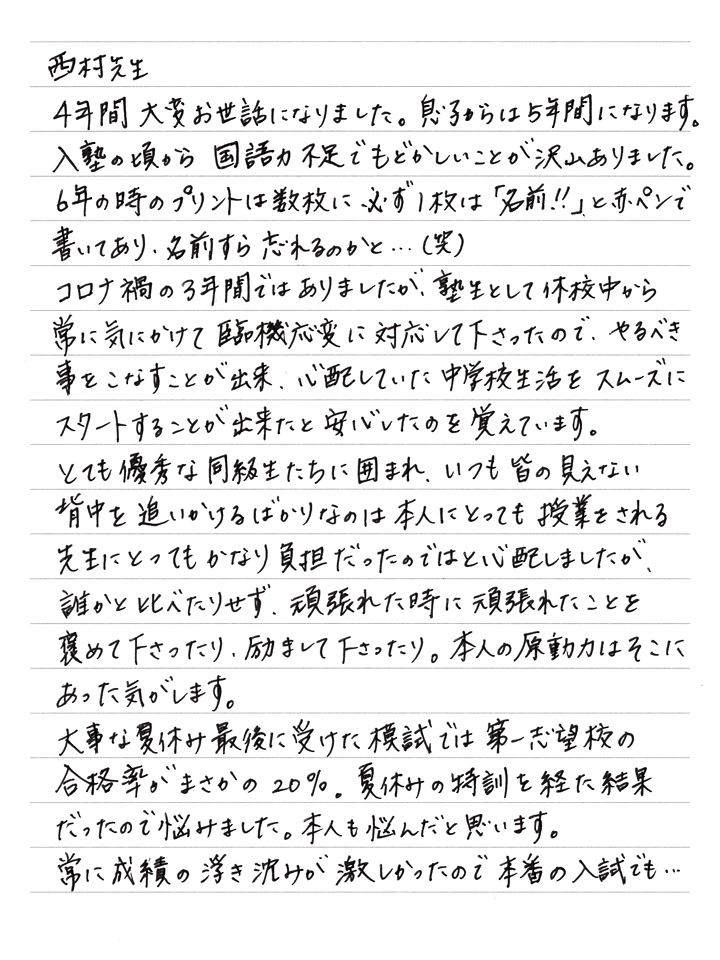 西村先生
4年間 大変お世話になりました。息子からは5年間になります。
入塾の頃から 国語力不足でもどかしいことが沢山ありました。
6年の時のプリントは数枚に必ず1枚は「名前!!」と赤ペンで
書いてあり、名前すら忘れるのかと…(笑)
コロナ禍の3年間ではありましたが、塾生として休校中から
常に気にかけて臨機応変に対応して下さったので、やるべき
事をこなすことが出来、心配していた中学校生活をスムーズに
スタートすることが出来たと安心したのを覚えています。
とても優秀な同級生たちに囲まれ、いつも皆の見えない
背中を追いかけるばかりなのは本人にとっても授業をされる
先生にとってもかなり負担だったのではと心配しましたが、
誰かと比べたりせず、頑張れた時に頑張れたことを
褒めて下さったり、励まして下さったり。本人の原動力はそこに
あった気がします。
大事な夏休み最後に受けた模試では第一志望校の
合格率がまさかの20%。夏休みの特訓を経た結果
だったので悩みました。本人も悩んだと思います。
常に成績の浮き沈みが激しかったので本番の入試でも…